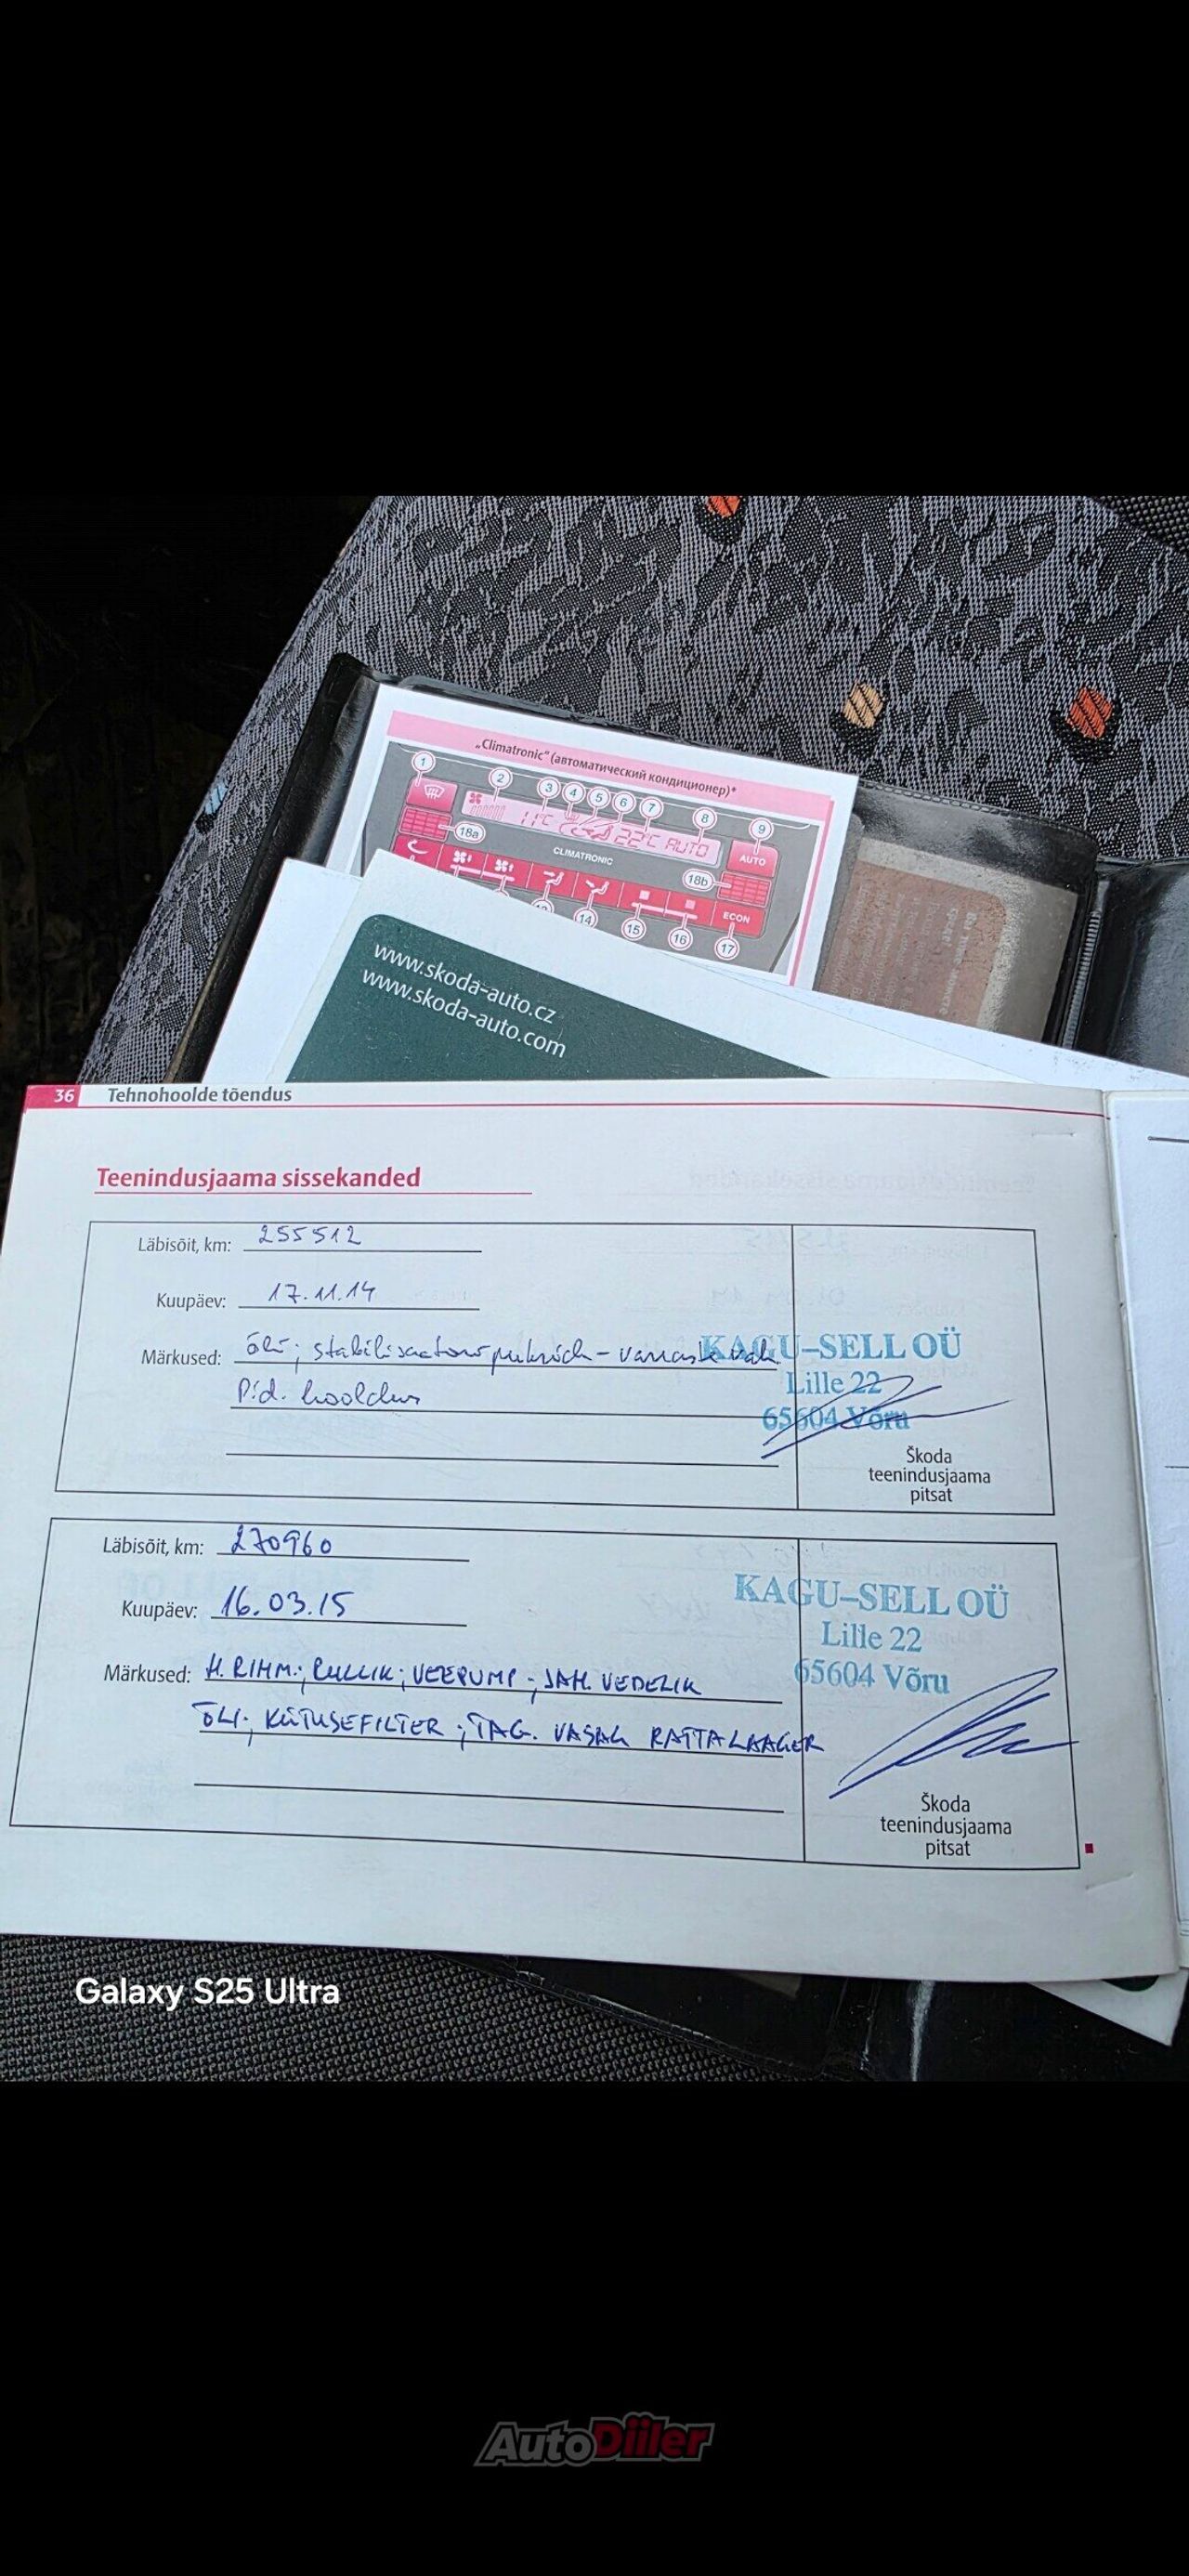 „Climatronic" (автоматический кондиционер)*
1
2
3
4
5
6
7
8
9
11°C
22°C AUTO
AUTO
18a
CLIMATRONIC
18b
14
15
16
ECON
17
www.skoda-auto.cz
www.skoda-auto.com
36 Tehnohoolde tõendus
Teenindusjaama sissekanded
Läbisõit, km: 255512
Kuupäev: 17.11.14
Märkused: õli; stabilisaatori puksid - varraste vah.
Pid. hooldus
KAGU-SELL OÜ
Lille 22
65604 Võru
Škoda
teenindusjaama
pitsat
Läbisõit, km: 270960
Kuupäev: 16.03.15
Märkused: H. RIHM.; RULLIK; VEEPUMP; JAH. VEDELIK
ÕLI; KÜTUSEFILTER; TAG. VASAK RATTALAAGER
KAGU-SELL OÜ
Lille 22
65604 Võru
Škoda
teenindusjaama
pitsat
Galaxy S25 Ultra
AutoDiiler